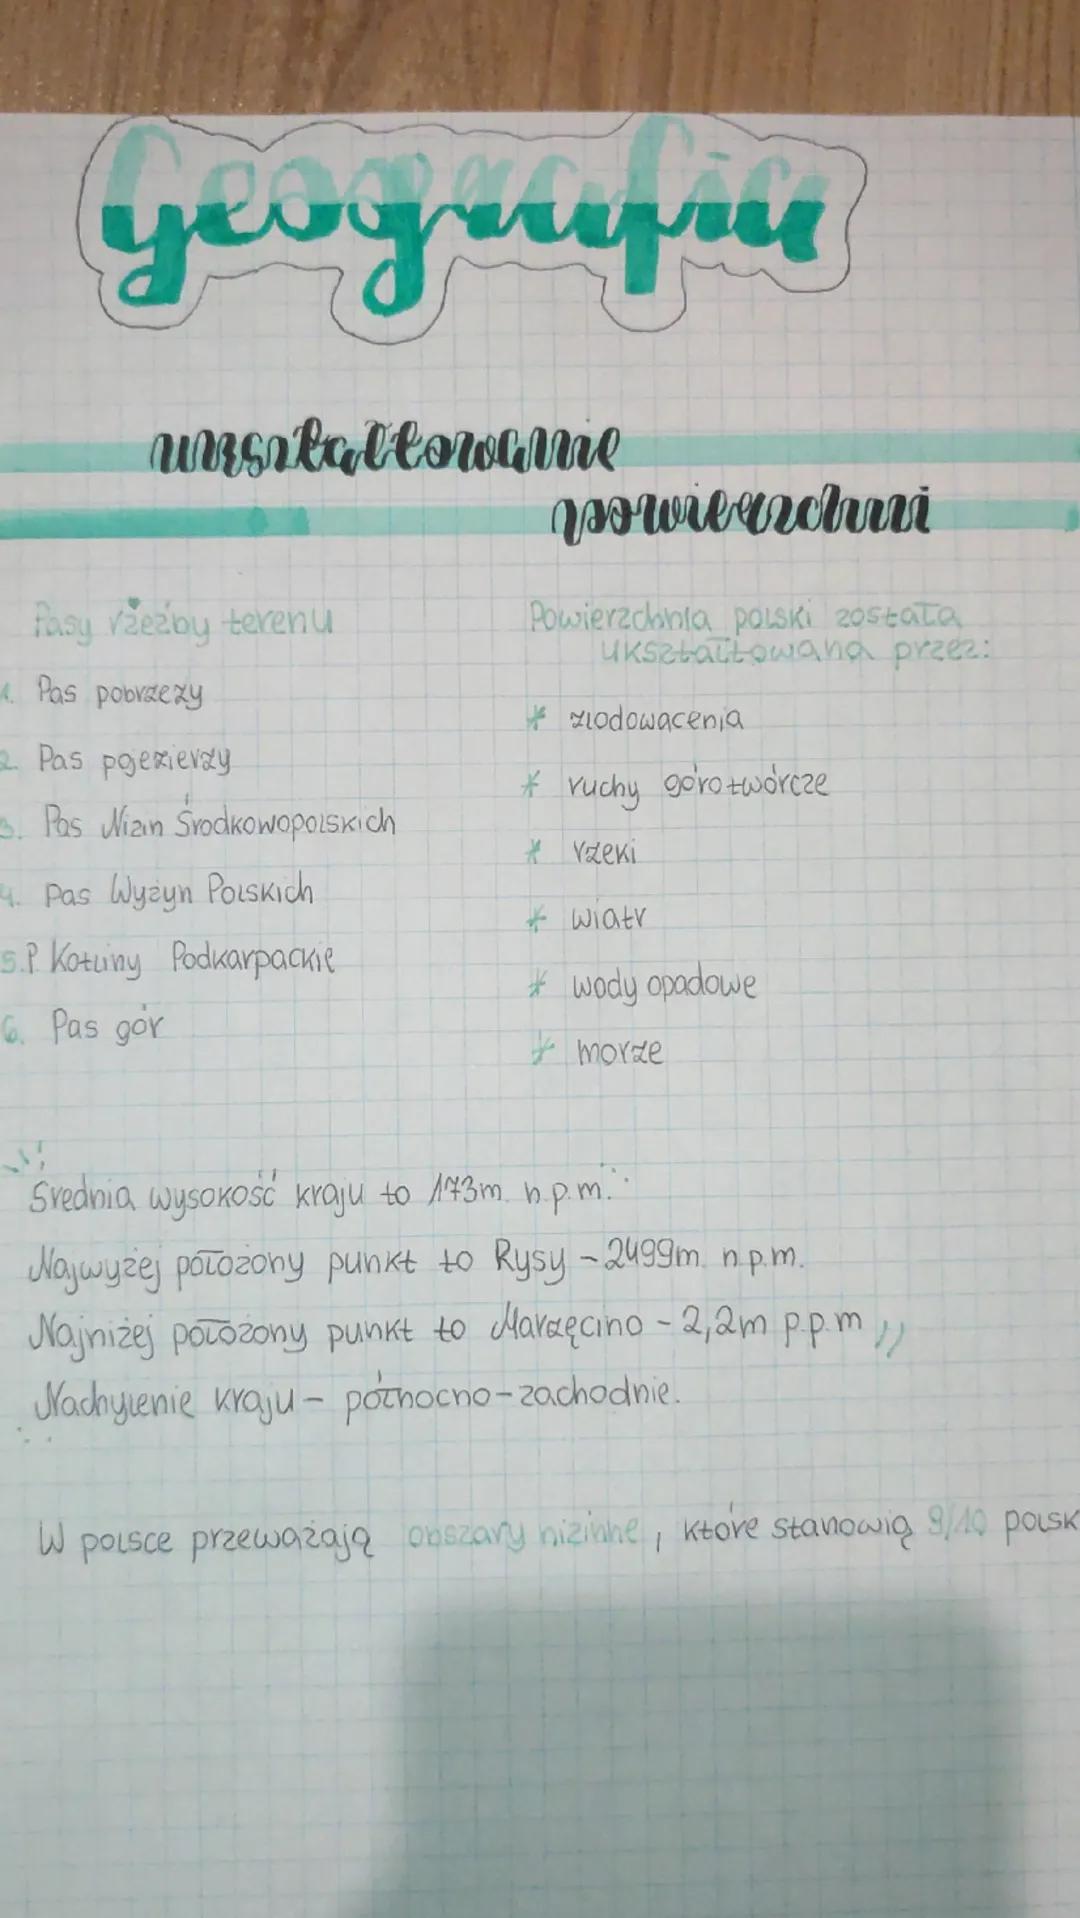 Geografia
ukształtowanie
powierzchni
Pasy rzeźby terenu
1. Pas pobrzeży
2. Pas pojezierzy
3. Pas Nizin Środkowopolskich
4. Pas Wyżyn Polskich
5. P. Kotliny Podkarpackie
6. Pas gór
Powierzchnia polski została
ukształtowana przez:
* zlodowacenia
* ruchy górotwórcze
* rzeki
* wiatr
* wody opadowe
* morze
Średnia wysokość kraju to 173m n.p.m.
Najwyżej położony punkt to Rysy - 2499m n.p.m.
Najniżej położony punkt to Marzęcino - 2,2m p.p.m
Nachylenie kraju - północno-zachodnie.
W polsce przeważają obszary nizinne, które stanowią 9/10 polsk